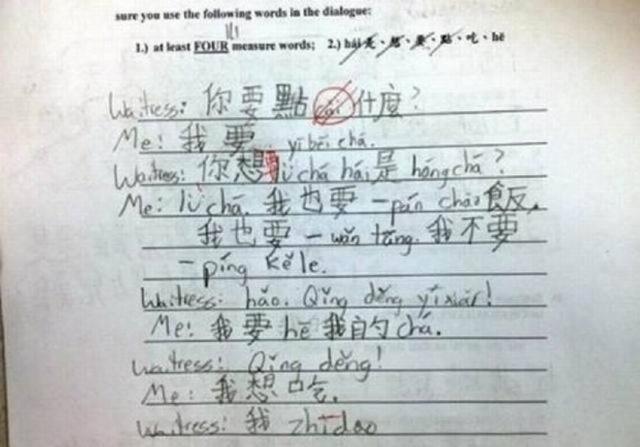 sure you use the following words in the dialogue:
1.) at least FOUR measure words; 2.) hái是、想、要、點、吃、hē
Waitress: 你要點 什麼?
Me: 我要 yī bēi chá.
Waitress: 你想 lǜ chá hái是 hóng chá?
Me: lǜ chá. 我也要一pán chǎo飯,
我也要一wǎn tāng. 我不要
一píng kělè.
Waitress: hǎo. Qǐng děng yíxiàr!
Me: 我要 hē 我的 chá.
Waitress: Qǐng děng!
Me: 我想吃.
Waitress: 我 zhīdao